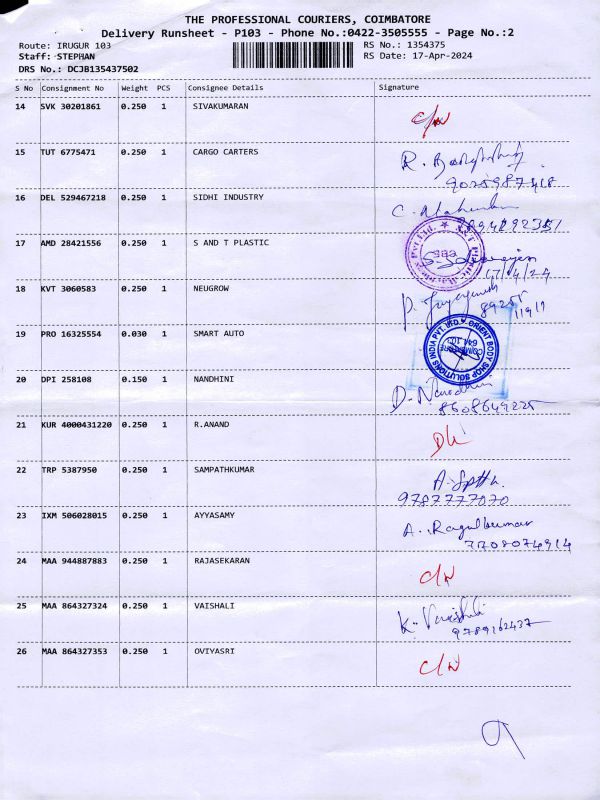 THE PROFESSIONAL COURIERS, COIMBATORE
Delivery Runsheet - P103 - Phone No.:0422-3505555 - Page No.:2
Route: IRUGUR 103
RS No.: 1354375
Staff: STEPHAN
RS Date: 17-Apr-2024
DRS No.: DCJB135437502
S No Consignment No Weight PCS Consignee Details Signature
14 SVK 30201861 0.250 1 SIVAKUMARAN
15 TUT 6775471 0.250 1 CARGO CARTERS R.
16 DEL 529467218 0.250 1 SIDHI INDUSTRY C.
17 AMD 28421556 0.250 1 S AND T PLASTIC
17/4/24
18 KVT 3060583 0.250 1 NEUGROW
19 PRO 16325554 0.030 1 SMART AUTO
ORIENT BODY SHOP SOLUTIONS INDIA PVT. LTD.
COIMBATORE
20 DPI 258108 0.150 1 NANDHINI D.
8608649225
21 KUR 4000431220 0.250 1 R.ANAND
22 TRP 5387950 0.250 1 SAMPATHKUMAR A.
9787777070
23 IXM 506028015 0.250 1 AYYASAMY A. Ragulkumar
24 MAA 944887883 0.250 1 RAJASEKARAN
25 MAA 864327324 0.250 1 VAISHALI K. Vaishali
9789162437
26 MAA 864327353 0.250 1 OVIYASRI